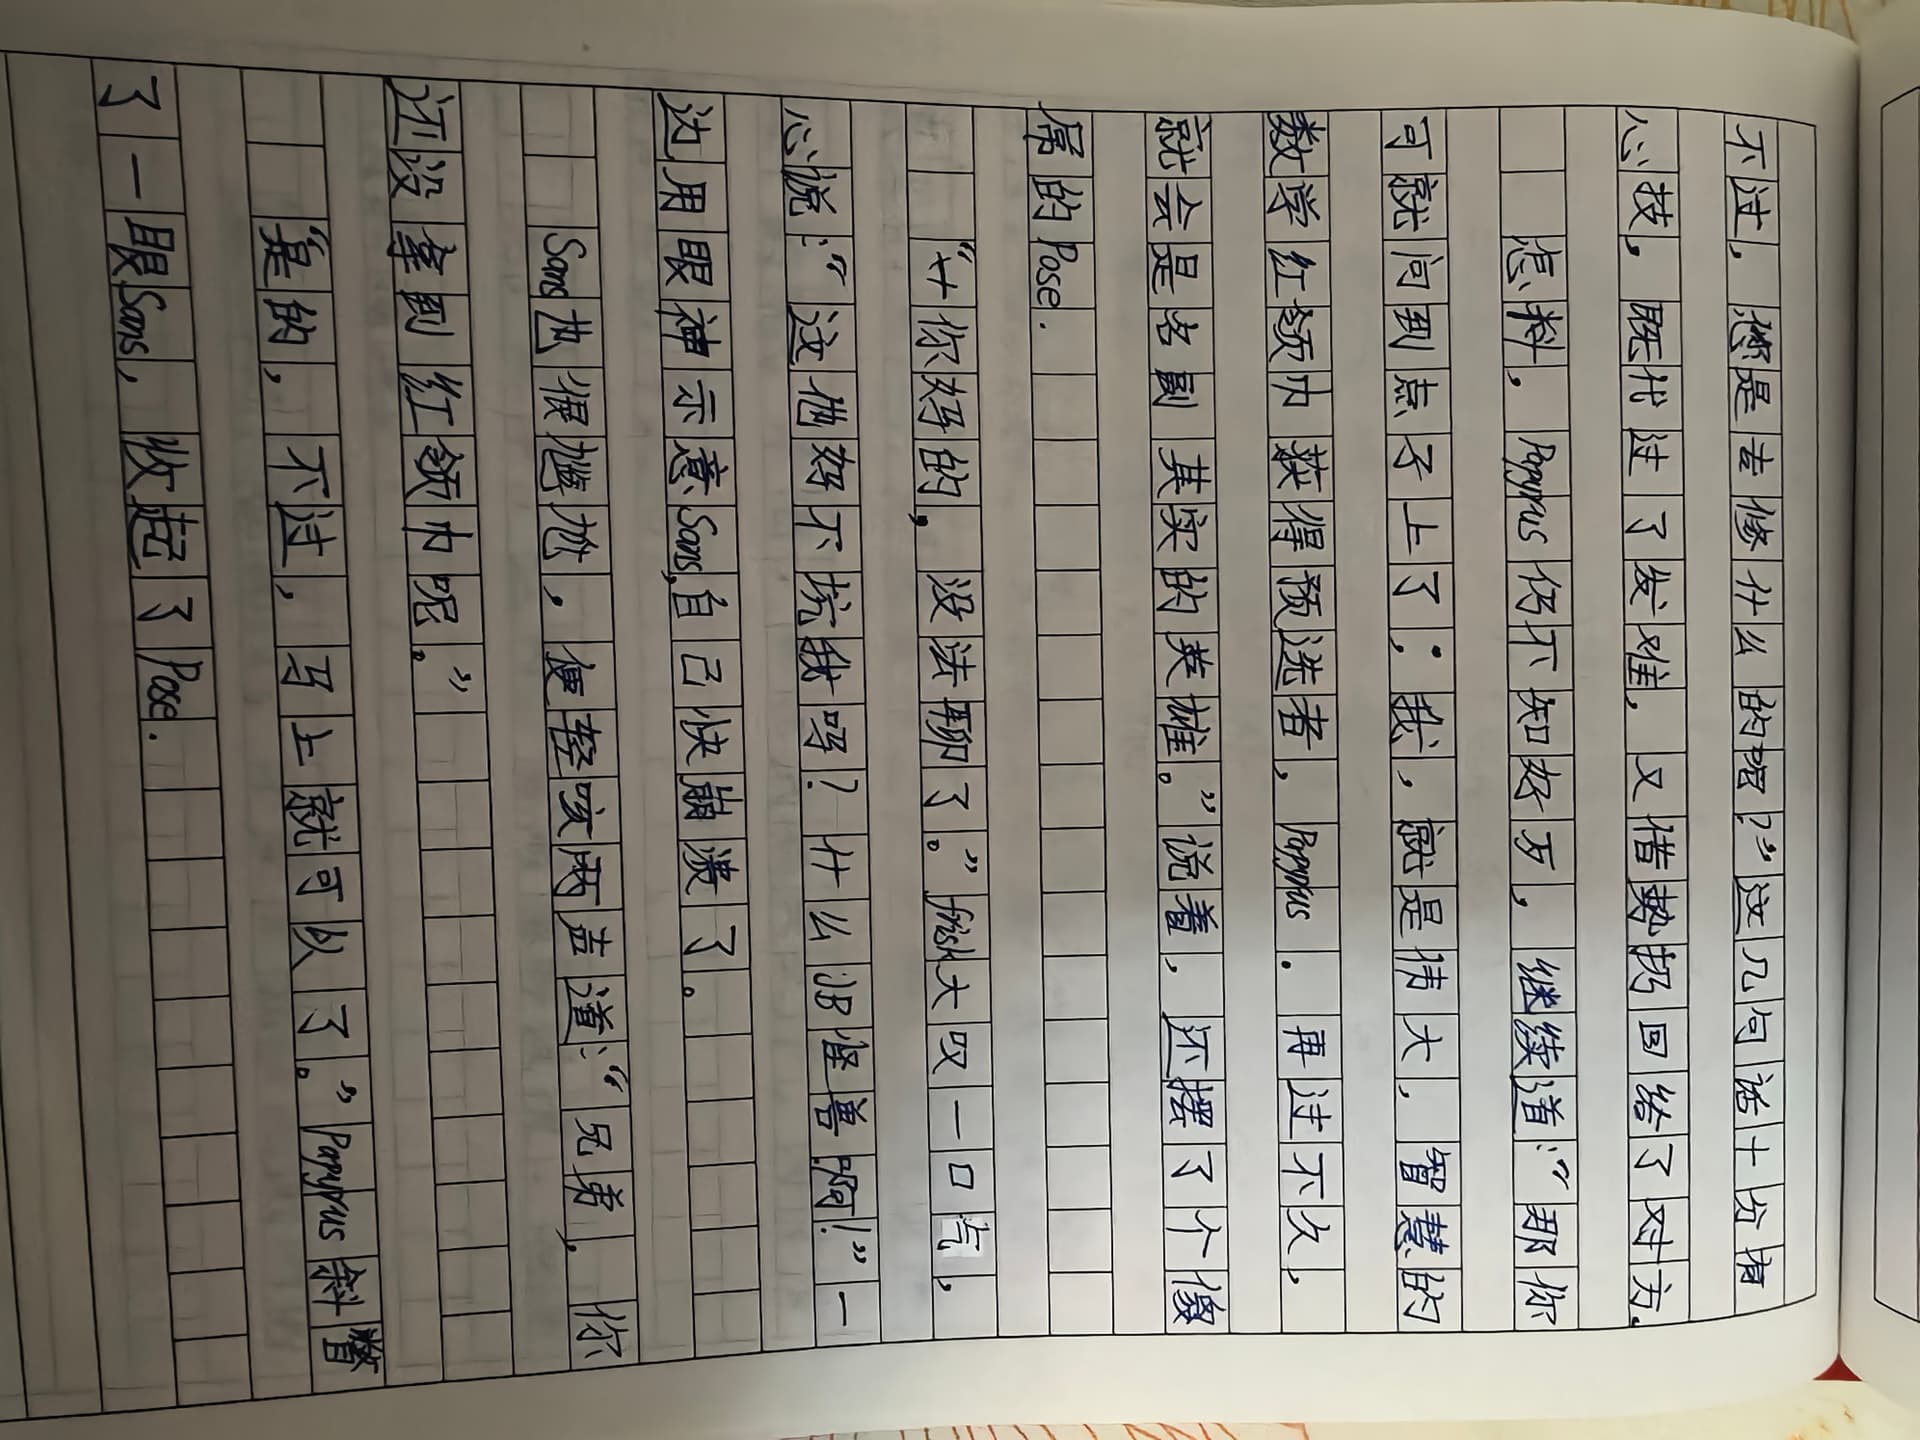 不过，您是去修什么的呢？”这几句话十分有
心技，既代过了发难，又借势扔回给了对方.
虑料，Papyrus仍不知好歹，继续道：“那你
可就问到点子上了；我，就是伟大，智慧的
数学红领巾获得预选者，Papyrus．再过不久，
就会是名副其实的英雄。”说着，还摆了个傻
屌的Pose.
“十你好的，没法聊了。”frisk大叹一口气，
心说：“这他好不统我吗？什么JB怪兽啊！”一
边用眼神示意Sans，自己快崩溃了。
Sans也很尴尬，便轻咳两声道：“兄弟，你
还没拿到红领巾呢。”
“是的，不过，马上就可以了。”Papyrus斜瞥
了一眼Sans，收起了Pose.